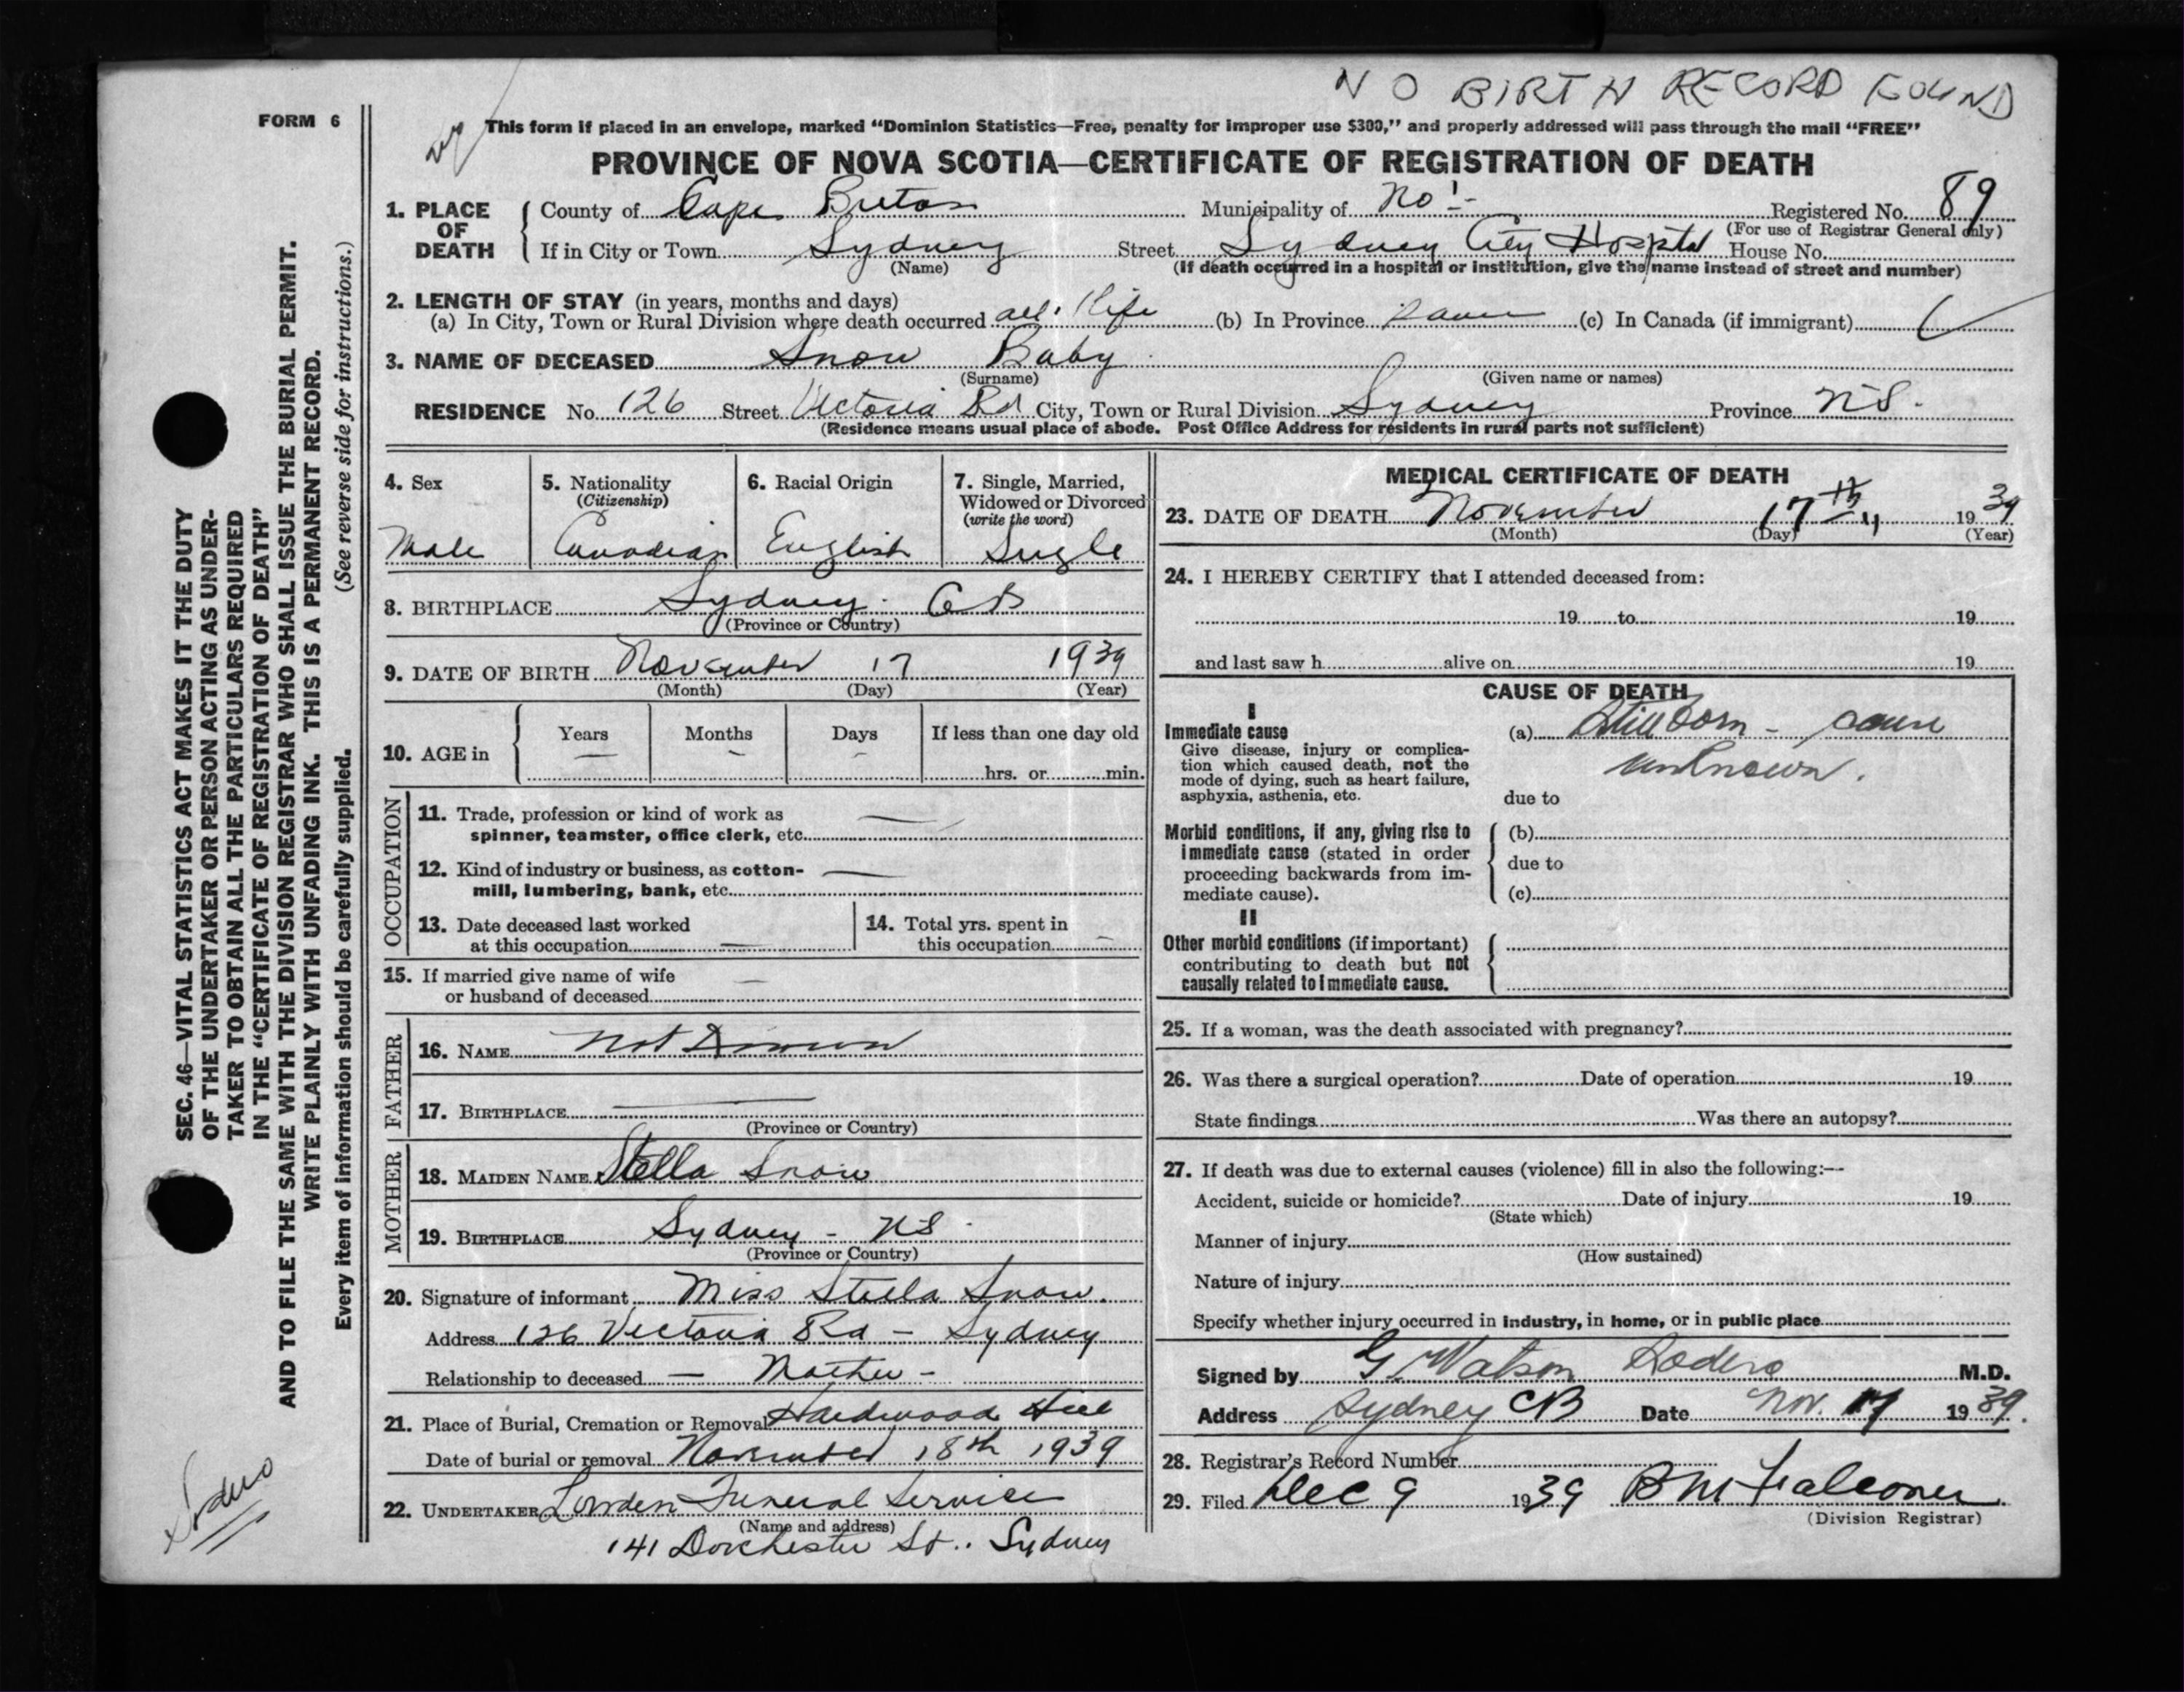 NO BIRTH RECORD FOUND
FORM 6
This form if placed in an envelope, marked "Dominion Statistics—Free, penalty for improper use $300," and properly addressed will pass through the mail "FREE"
PROVINCE OF NOVA SCOTIA—CERTIFICATE OF REGISTRATION OF DEATH
1. PLACE OF DEATH
County of Cape Breton Municipality of No 1 - Registered No. 89
(For use of Registrar General only)
If in City or Town Sydney Street Sydney City Hospital House No.
(Name) (If death occurred in a hospital or institution, give the name instead of street and number)
2. LENGTH OF STAY (in years, months and days)
(a) In City, Town or Rural Division where death occurred all life (b) In Province same (c) In Canada (if immigrant)
3. NAME OF DECEASED Snow Baby
(Surname) (Given name or names)
RESIDENCE No. 126 Street Victoria Rd City, Town or Rural Division Sydney Province NS.
(Residence means usual place of abode. Post Office Address for residents in rural parts not sufficient)
4. Sex
Male
5. Nationality
(Citizenship)
Canadian
6. Racial Origin
English
7. Single, Married, Widowed or Divorced
(write the word)
Single
8. BIRTHPLACE Sydney. CB
(Province or Country)
9. DATE OF BIRTH November 17 1939
(Month) (Day) (Year)
10. AGE in
Years — Months — Days — If less than one day old
hrs. or min.
OCCUPATION
11. Trade, profession or kind of work as
spinner, teamster, office clerk, etc. —
12. Kind of industry or business, as cotton-
mill, lumbering, bank, etc. —
13. Date deceased last worked
at this occupation —
14. Total yrs. spent in
this occupation —
15. If married give name of wife
or husband of deceased —
FATHER
16. NAME Not Known
17. BIRTHPLACE —
(Province or Country)
MOTHER
18. MAIDEN NAME Stella Snow
19. BIRTHPLACE Sydney - NS.
(Province or Country)
20. Signature of informant Miss Stella Snow.
Address 126 Victoria Rd - Sydney
Relationship to deceased — Mother -
21. Place of Burial, Cremation or Removal Hardwood Hill
Date of burial or removal November 18th 1939
22. UNDERTAKER Funeral Service
(Name and address)
141 Dorchester St.. Sydney
MEDICAL CERTIFICATE OF DEATH
23. DATE OF DEATH November 17th 1939
(Month) (Day) (Year)
24. I HEREBY CERTIFY that I attended deceased from:
19 to 19
and last saw h alive on 19
CAUSE OF DEATH
I
Immediate cause
Give disease, injury or complica-
tion which caused death, not the
mode of dying, such as heart failure,
asphyxia, asthenia, etc.
(a) Stillborn - cause
unknown.
due to
Morbid conditions, if any, giving rise to
immediate cause (stated in order
proceeding backwards from im-
mediate cause).
(b)
due to
(c)
II
Other morbid conditions (if important)
contributing to death but not
causally related to immediate cause.
25. If a woman, was the death associated with pregnancy?
26. Was there a surgical operation? Date of operation 19
State findings Was there an autopsy?
27. If death was due to external causes (violence) fill in also the following:—
Accident, suicide or homicide? Date of injury 19
(State which)
Manner of injury
(How sustained)
Nature of injury
Specify whether injury occurred in industry, in home, or in public place
Signed by G. Watson Sodero M.D.
Address Sydney CB Date Nov. 17 1939.
28. Registrar's Record Number
29. Filed Dec 9 1939 B M Falconer
(Division Registrar)
SEC. 46—VITAL STATISTICS ACT MAKES IT THE DUTY
OF THE UNDERTAKER OR PERSON ACTING AS UNDER-
TAKER TO OBTAIN ALL THE PARTICULARS REQUIRED
IN THE "CERTIFICATE OF REGISTRATION OF DEATH"
AND TO FILE THE SAME WITH THE DIVISION REGISTRAR WHO SHALL ISSUE THE BURIAL PERMIT.
WRITE PLAINLY WITH UNFADING INK. THIS IS A PERMANENT RECORD.
Every item of information should be carefully supplied. (See reverse side for instructions.)
Sodero